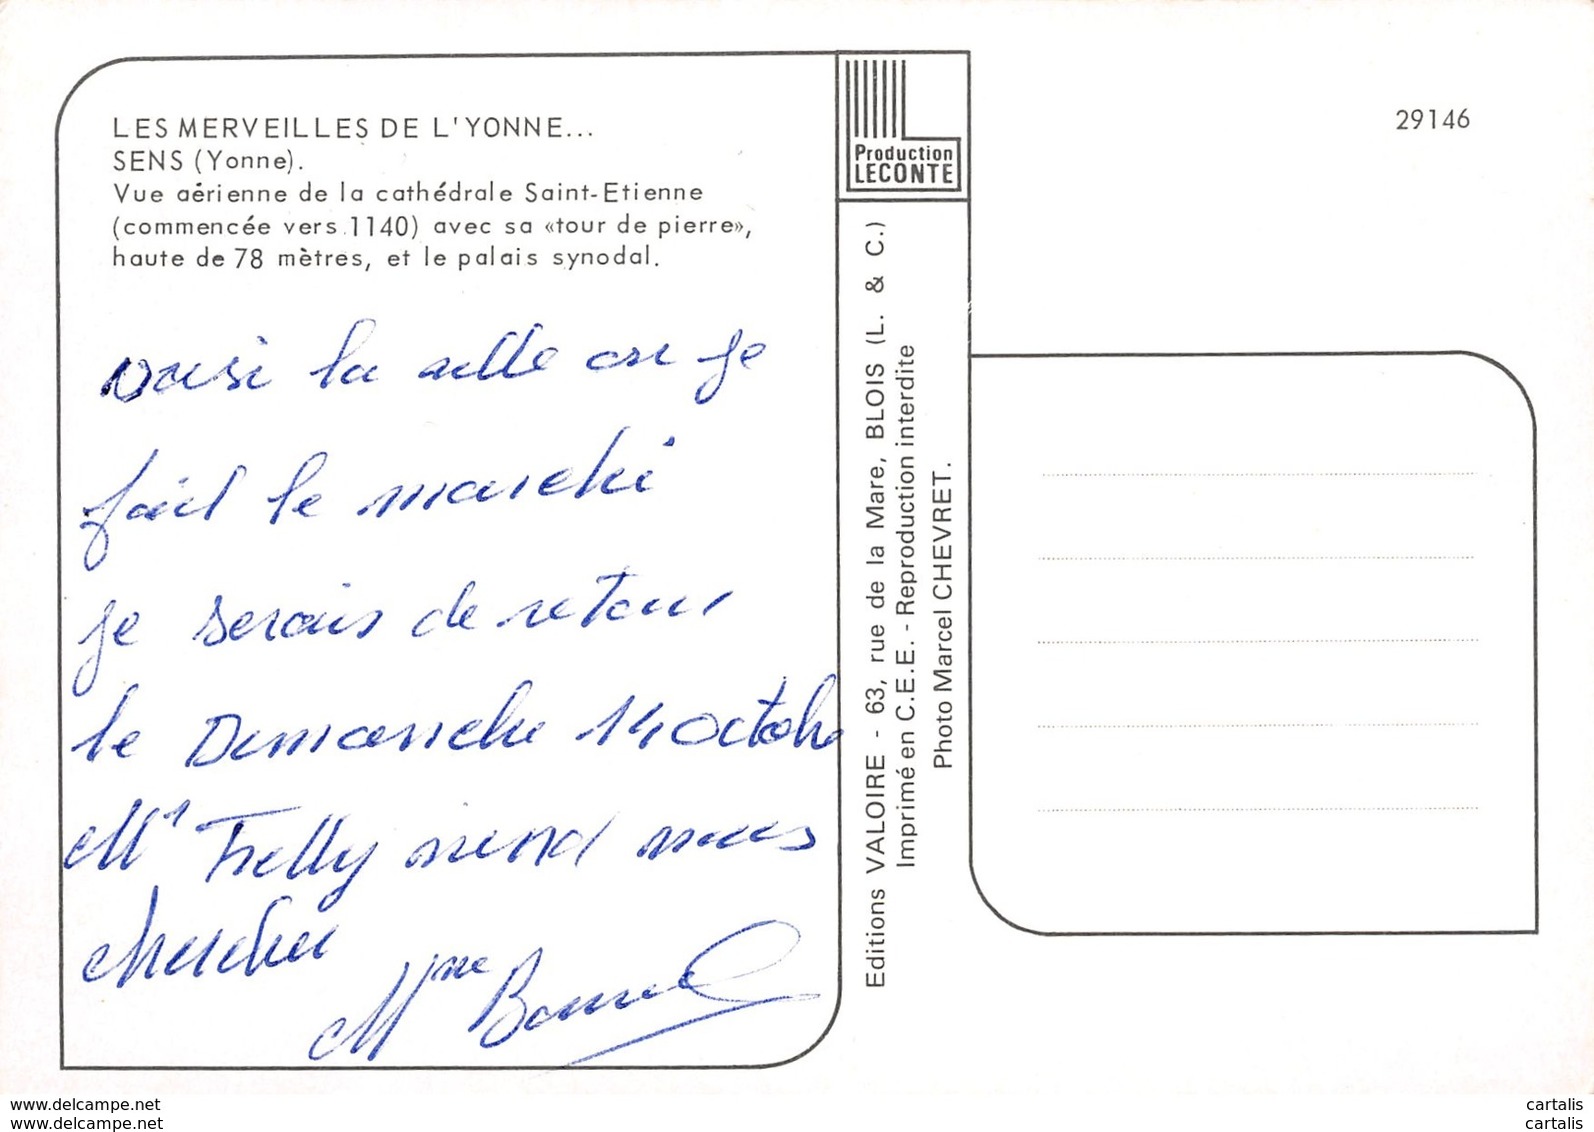 LES MERVEILLES DE L'YONNE...
SENS (Yonne).
Vue aérienne de la cathédrale Saint-Etienne
(commencée vers 1140) avec sa «tour de pierre»,
haute de 78 mètres, et le palais synodal.
voisi la ville ou je
fait le marché
je serais de retour
le Dimanche 14 octobre
Mr Frelly viend nous
chercher
Mme
Production
LECONTE
Editions VALOIRE - 63, rue de la Mare, BLOIS (L. & C.)
Imprimé en C.E.E. - Reproduction interdite
Photo Marcel CHEVRET.
29146
www.delcampe.net
www.delcampe.net
cartalis
cartalis